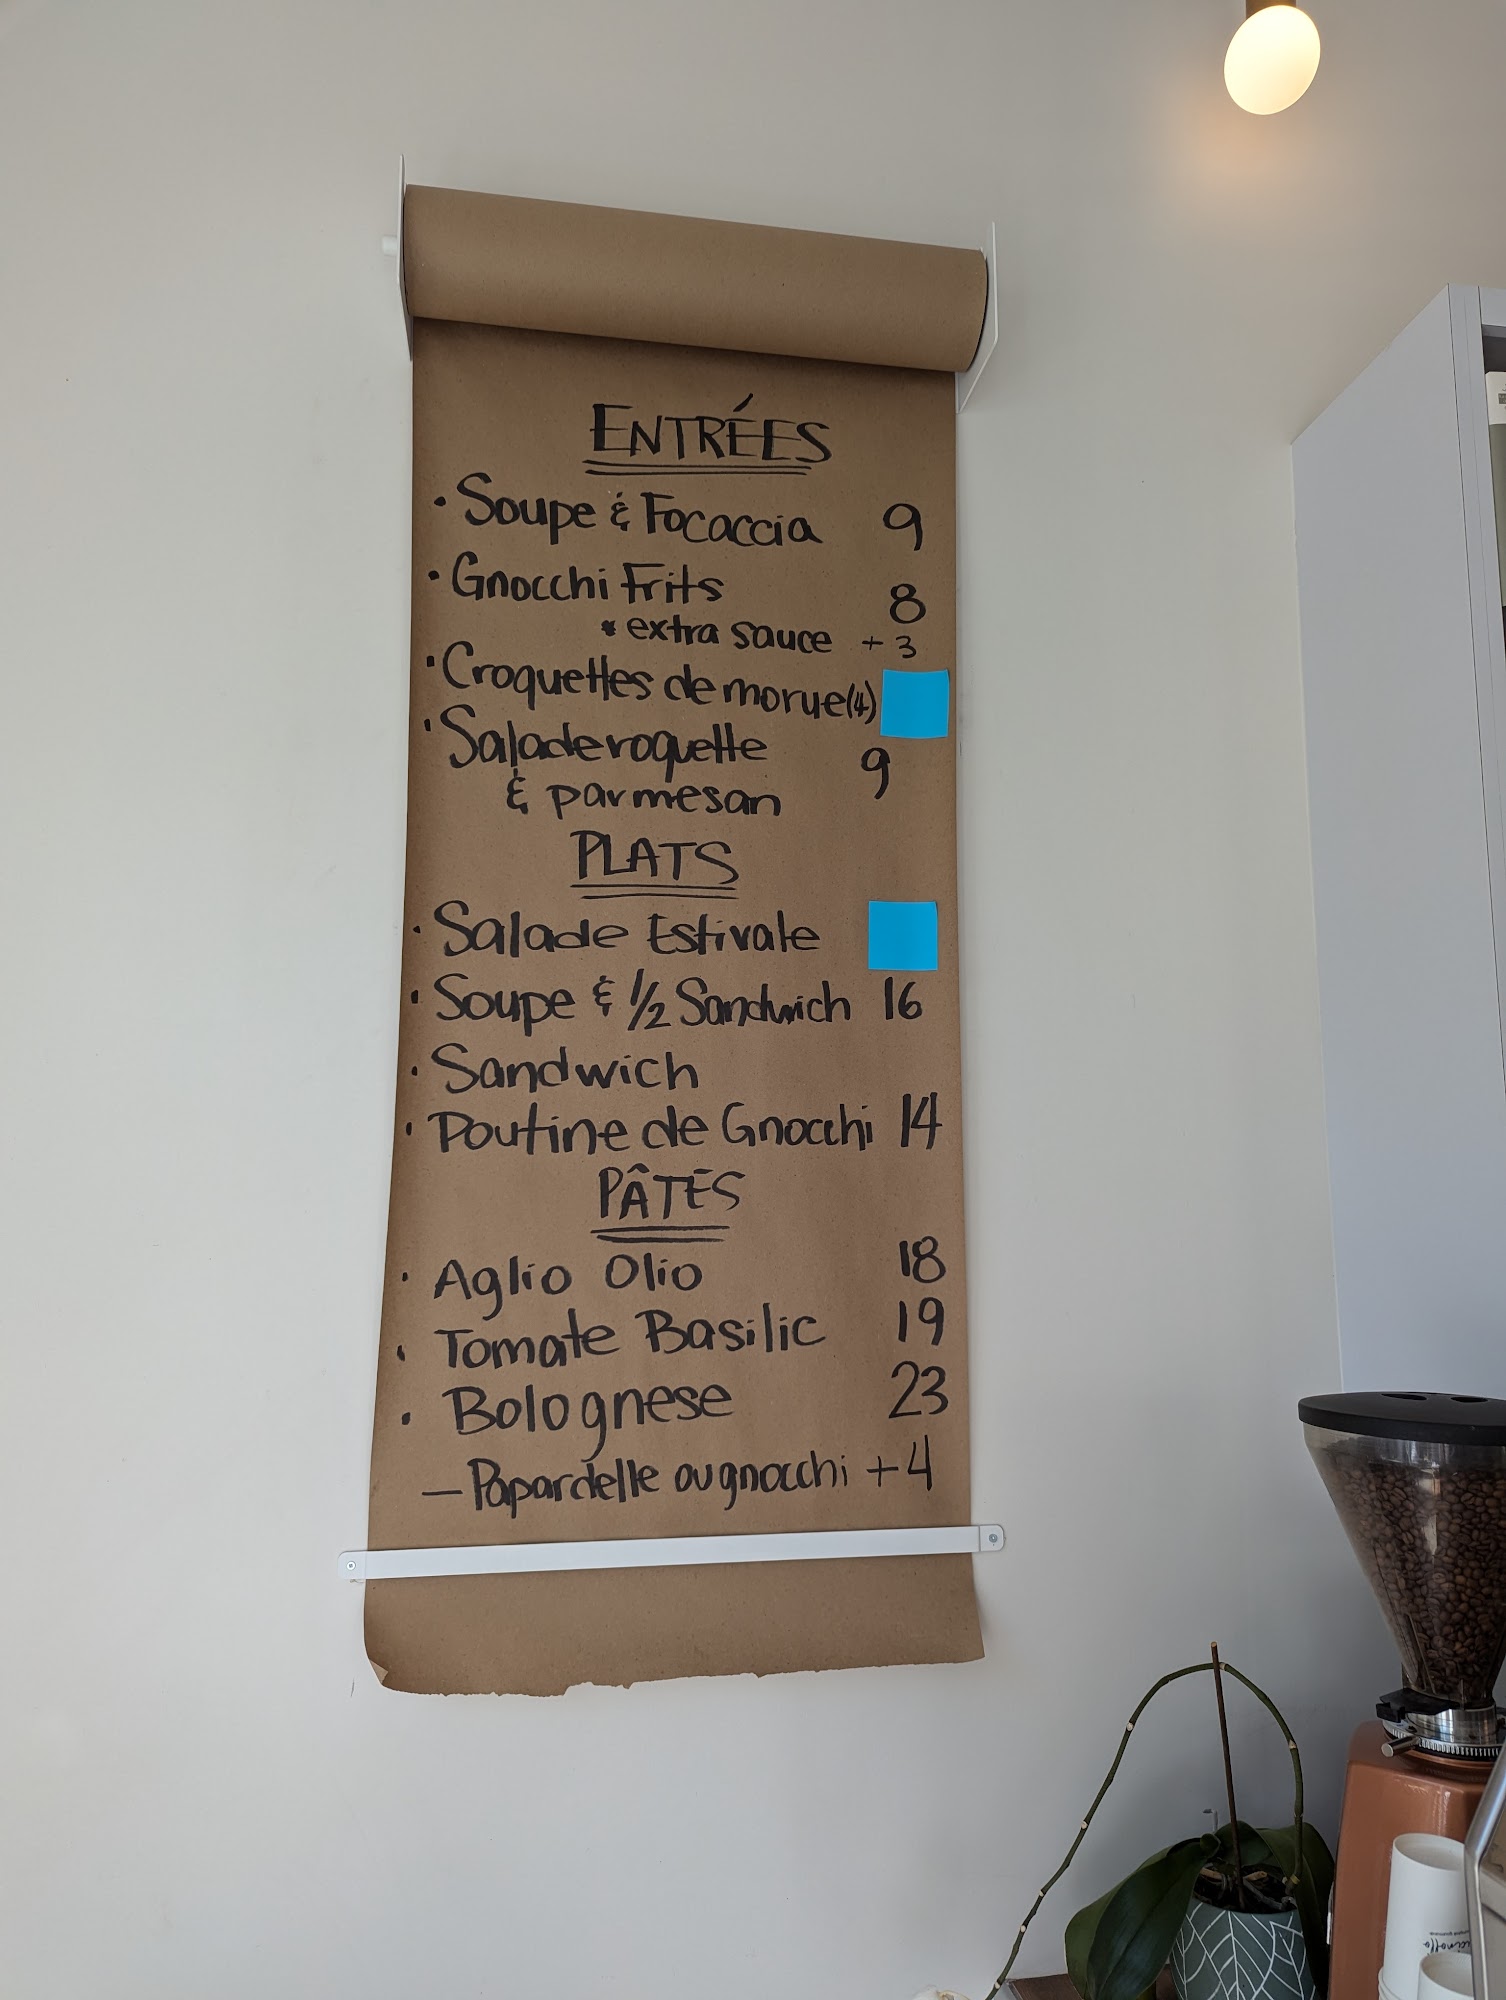 ENTRÉES
· Soupe & Focaccia 9
· Gnocchi Frits 8
* extra sauce + 3
· Croquettes de morue (4)
· Salade roquette 9
& parmesan
PLATS
· Salade Estivale
· Soupe & 1/2 Sandwich 16
· Sandwich
· Poutine de Gnocchi 14
PÂTES
· Aglio Olio 18
· Tomate Basilic 19
· Bolognese 23
— Papardelle ou gnocchi + 4